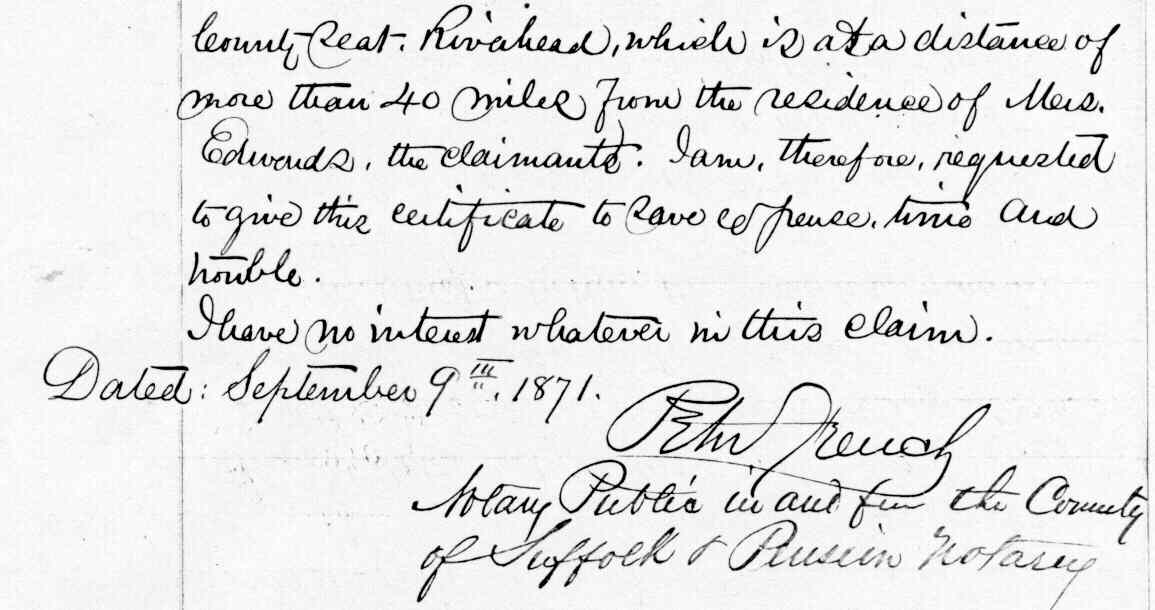 County Seat. Riverhead, which is at a distance of
more than 40 miles from the residence of Mrs.
Edwards, the claimant. I am, therefore, requested
to give this certificate to save expense, time and
trouble.
I have no interest whatever in this claim.
Dated: September 9th, 1871.
Peter French
Notary Public in and for the County
of Suffolk & Pension Notary